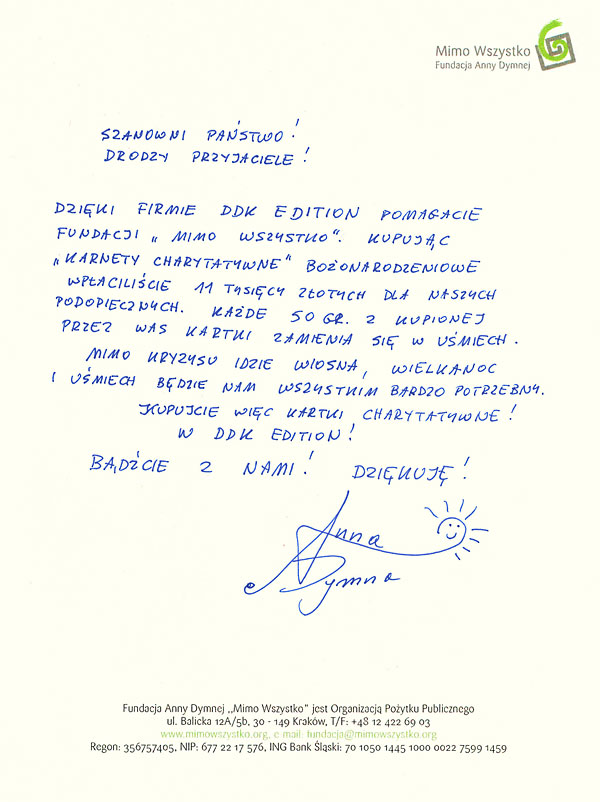 Mimo Wszystko
Fundacja Anny Dymnej
SZANOWNI PAŃSTWO!
DRODZY PRZYJACIELE!
DZIĘKI FIRMIE DDK EDITION POMAGACIE
FUNDACJI „MIMO WSZYSTKO". KUPUJĄC
„KARNETY CHARYTATYWNE" BOŻONARODZENIOWE
WPŁACILIŚCIE 11 TYSIĘCY ZŁOTYCH DLA NASZYCH
PODOPIECZNYCH. KAŻDE 50 GR. Z KUPIONEJ
PRZEZ WAS KARTKI ZAMIENIA SIĘ W UŚMIECH.
MIMO KRYZYSU IDZIE WIOSNA, WIELKANOC
I UŚMIECH BĘDZIE NAM WSZYSTKIM BARDZO POTRZEBNY.
KUPUJCIE WIĘC KARTKI CHARYTATYWNE!
W DDK EDITION!
BĄDŹCIE Z NAMI! DZIĘKUJĘ!
Anna
Dymna
Fundacja Anny Dymnej „Mimo Wszystko" jest Organizacją Pożytku Publicznego
ul. Balicka 12A/5b, 30 - 149 Kraków, T/F: +48 12 422 69 03
www.mimowszystko.org, e-mail: fundacja@mimowszystko.org
Regon: 356757405, NIP: 677 22 17 576, ING Bank Śląski: 70 1050 1445 1000 0022 7599 1459